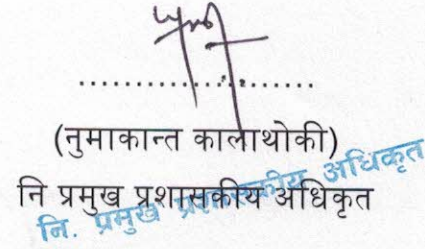 ....................
(नुमाकान्त कालाथोकी)
नि प्रमुख प्रशासकीय अधिकृत
नि. प्रमुख प्रशासकीय अधिकृत